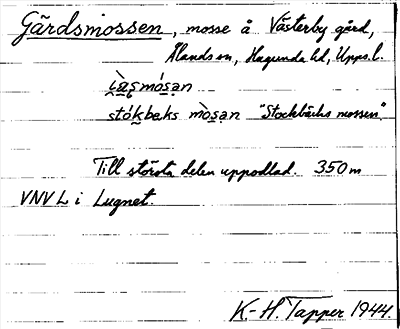 Gärdsmossen, mosse å Västerby gård,
Ålands sn, Hagunda hd, Upps. l.
stókbɛks mòsan "Stockbäcks mossen".
Till största delen uppodlad. 350 m
VNV L i Lugnet.
K.-H. Tapper 1944.